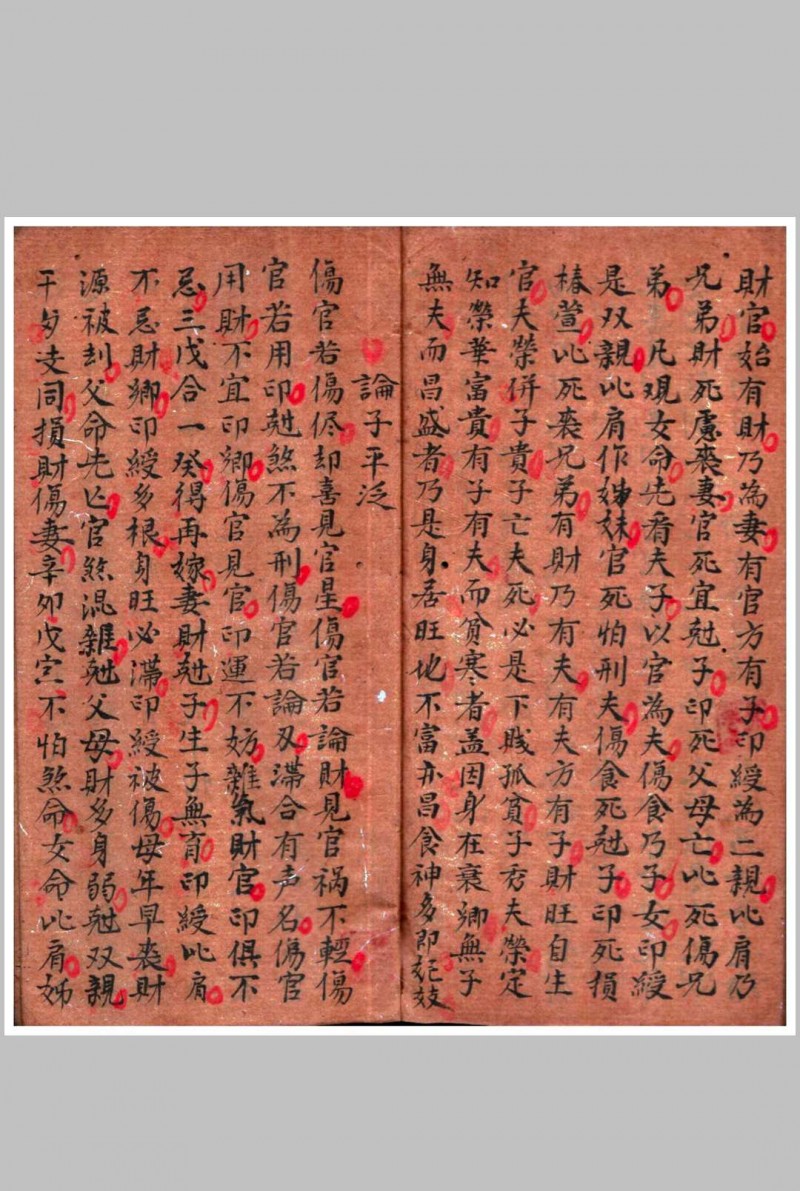 財官始有財乃為妻有官方有子印綬為二親比肩乃
兄弟財死慮喪妻官死宜尅子印死父母亡比死傷兄
弟 凡观女命先看夫子以官為夫傷食乃子女印綬
是双親比肩作姊妹官死怕刑夫傷食死尅子印死損
椿萱比死丧兄弟有財乃有夫有夫方有子財旺自生
官夫榮併子貴子亡夫死必是下贱孤貧子秀夫榮定
知榮華富貴有子有夫而貧寒者盖因身在衰卿無子
無夫而昌盛者乃是身居旺地不富亦昌食神多即妮妓
論子平泛
傷官若傷侭却喜見官星傷官若論財見官祸不輕傷
官若用印尅煞不為刑傷官若論刃滞合有声名傷官
用財不宜印卿傷官見官印運不妨雜氣財官印俱不
忌三戊合一癸得再嫁妻財尅子生子無育印綬比肩
不忌財卿印綬多根身旺必滯印綬被傷母年早丧財
源被刦父命先亡官煞混雜尅父母財多身弱尅双親
干与支同損財傷妻辛夘戊寅不怕煞命女命比肩姊